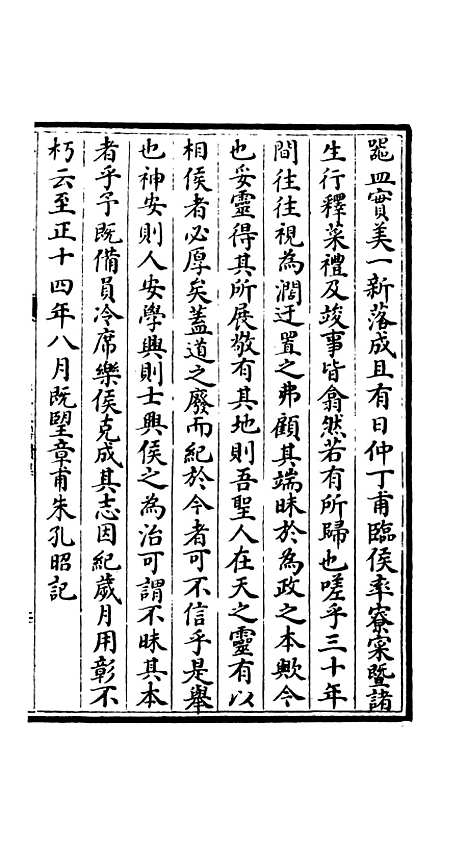 噐皿實美一新落成且有日仲丁甫臨侯率寮寀暨諸
生行釋菜禮及竣事皆翕然若有所歸也嗟乎三十年
間往往視為濶迂置之弗顧其端昧於為政之本歟今
也妥靈得其所展敬有其地則吾聖人在天之靈有以
相侯者必厚矣蓋道之廢而紀於今者可不信乎是舉
也神安則人安學興則士興侯之為治可謂不昧其本
者乎予既備員冷席樂侯克成其志因紀歲月用彰不
朽云至正十四年八月既望章甫朱孔昭記